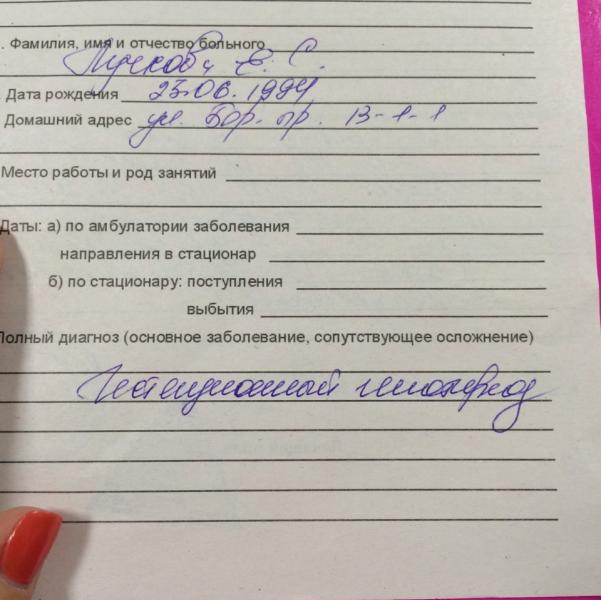 . Фамилия, имя и отчество больного
Е. С.
Дата рождения 23.06.1994
Домашний адрес ул. Бор. пр. 13-1-1
Место работы и род занятий
Даты: а) по амбулатории заболевания
направления в стационар
б) по стационару: поступления
выбытия
Полный диагноз (основное заболевание, сопутствующее осложнение)